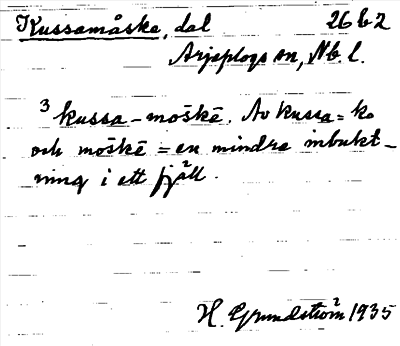 Kussamåske, dal 26 b 2
Arjeplogs sn, Nb. l.
³kussa-moškē. Av kussa = ko
och moškē = en mindre inbukt-
ning i ett fjäll.
H. Grundström 1935